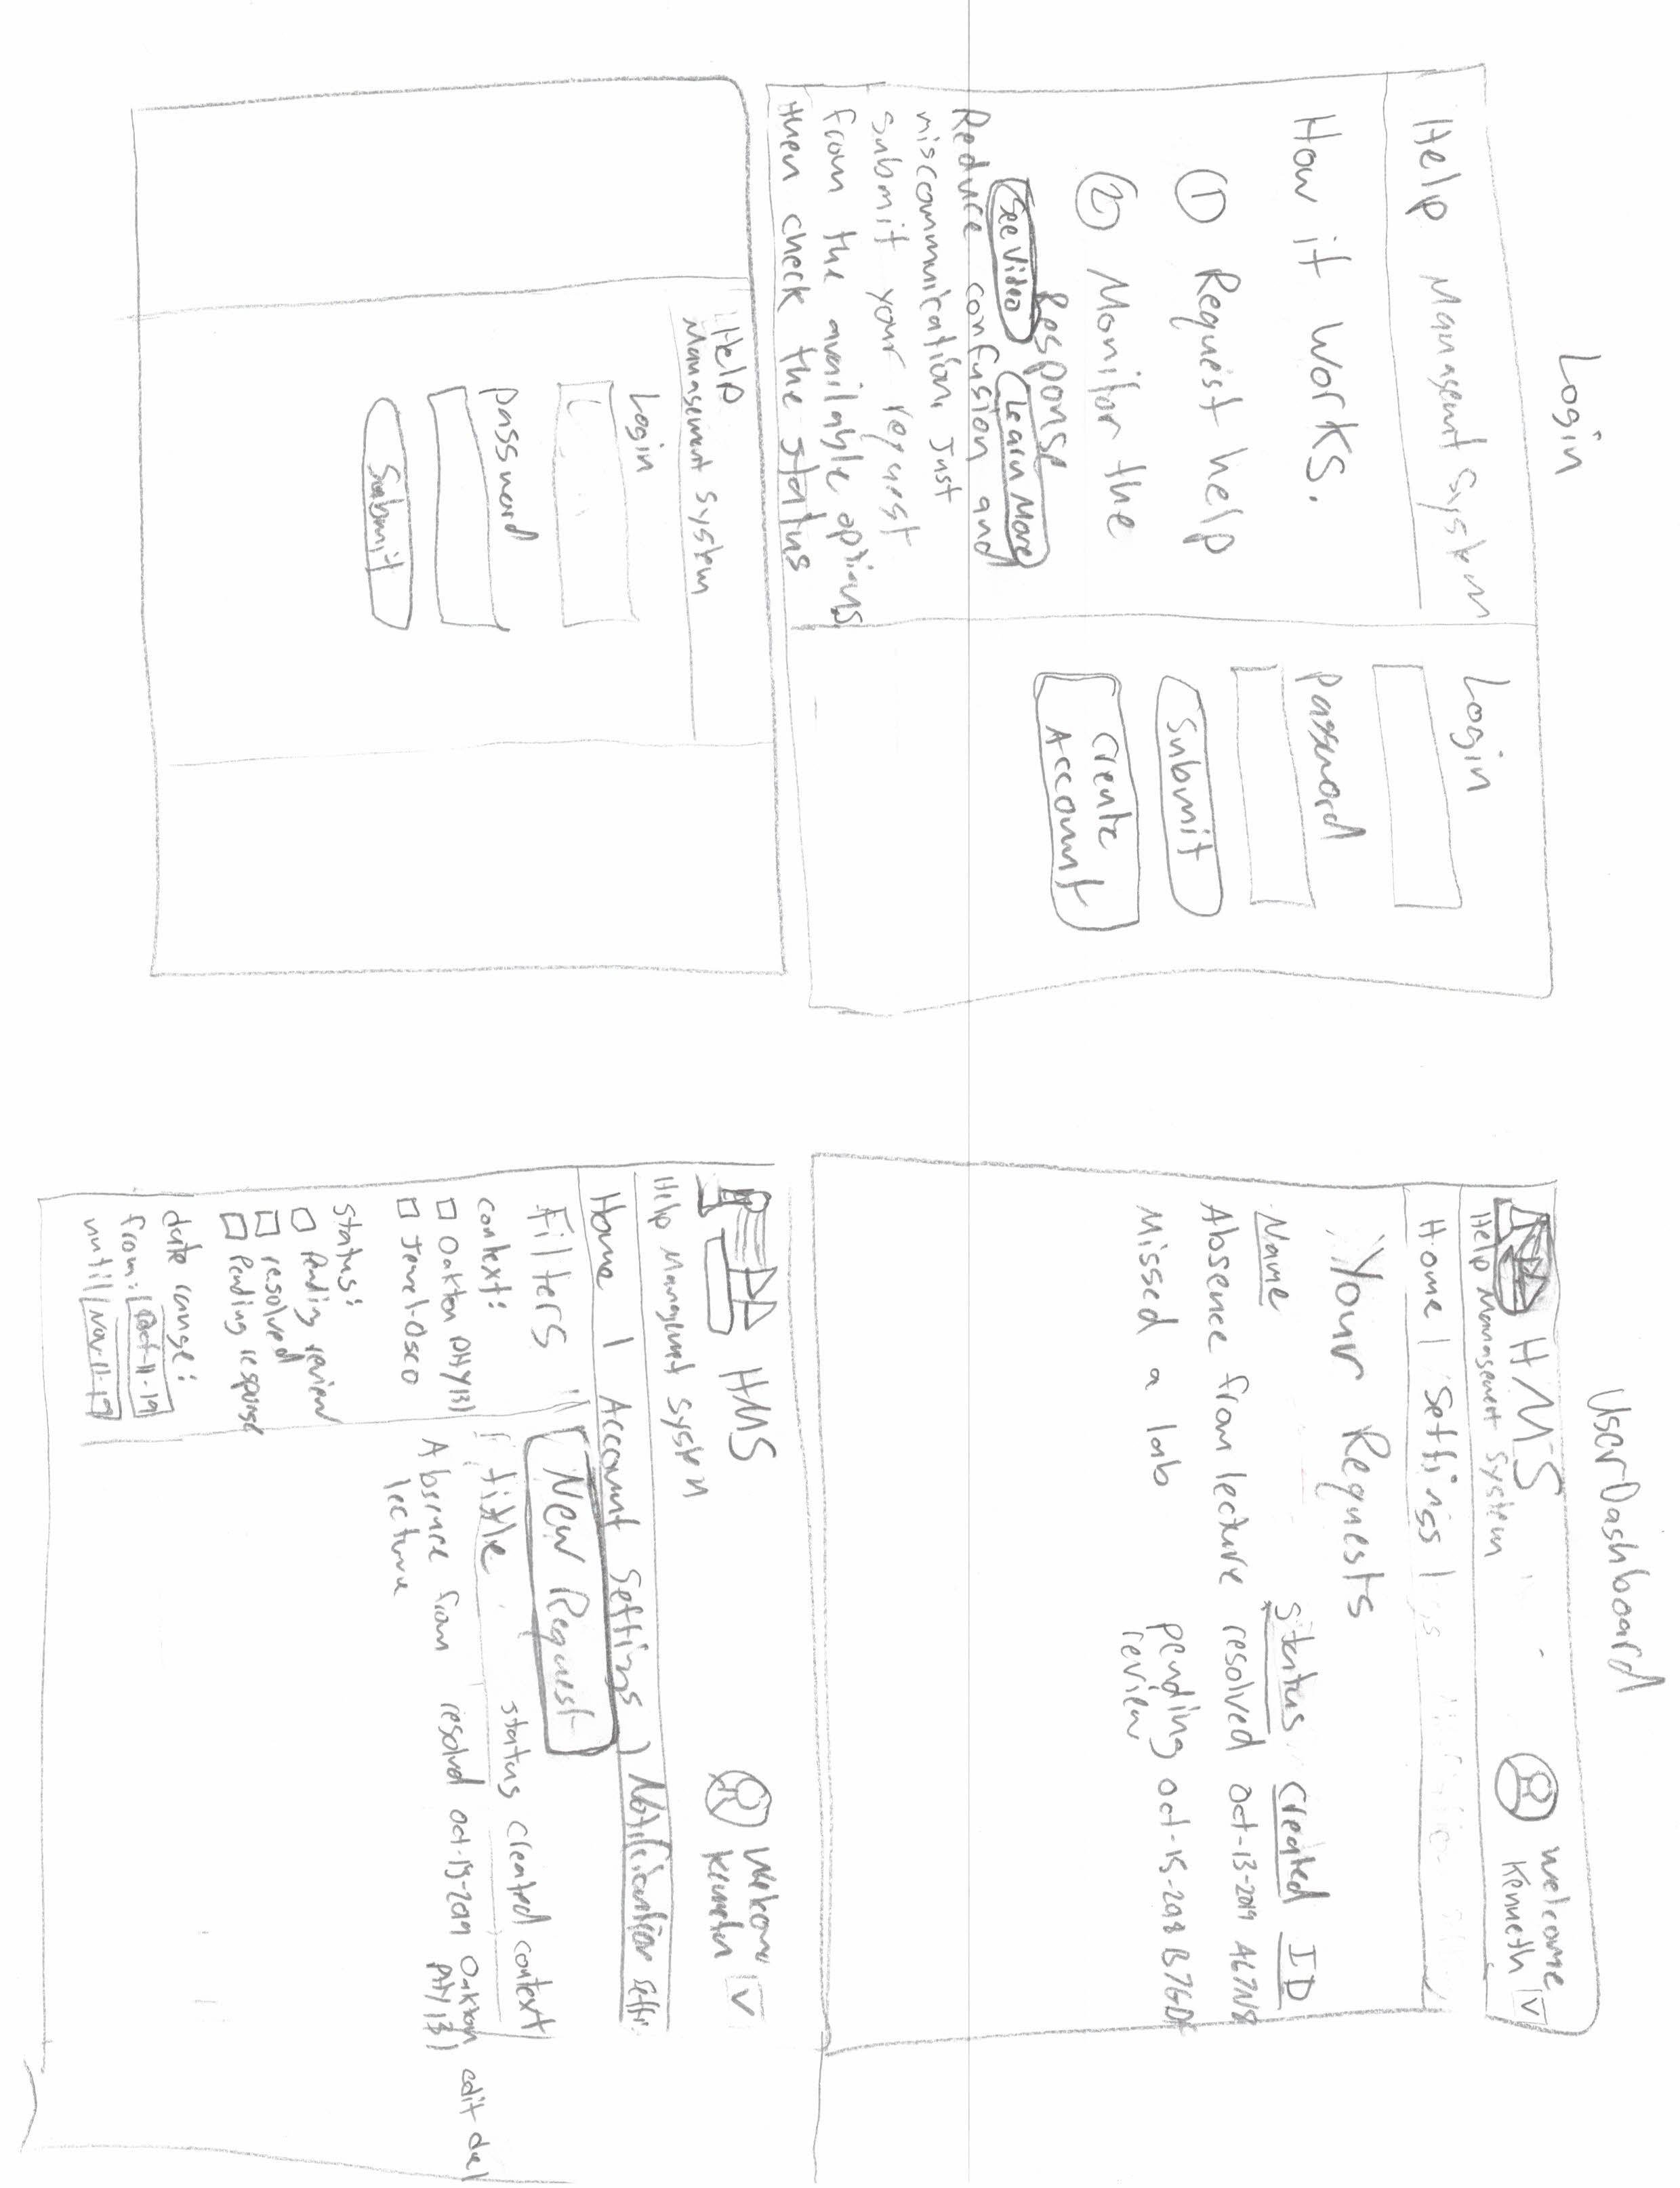 Login
Help Managemt System
How it works.
① Request help
② Monitor the
Response
See Video
Learn More
Reduce confusion and
miscommunication. Just
submit your request
from the available options
then check the status
Login
Password
Submit
Create
Account
User Dashboard
HMS
Help Management System
Welcome
Kenneth
Home | Settings |
Your Requests
Name status created ID
Absence from lecture resolved Oct-13-2019 A67N8
Missed a lab pending Oct-15-2018 B7GDF
review
Help
Management System
Login
password
Submit
HMS
Help Management System
Welcome
Kenneth
Home | Account Settings | Notification Setti
Filters
context:
Oakton PHY131
Jewel-Osco
status:
Pending review
resolved
Pending response
date range:
from: Oct-11-19
until Nov-11-19
New Request
title status created context
Absence from resolved Oct-13-2019 Oakton edit del
lecture PHY131